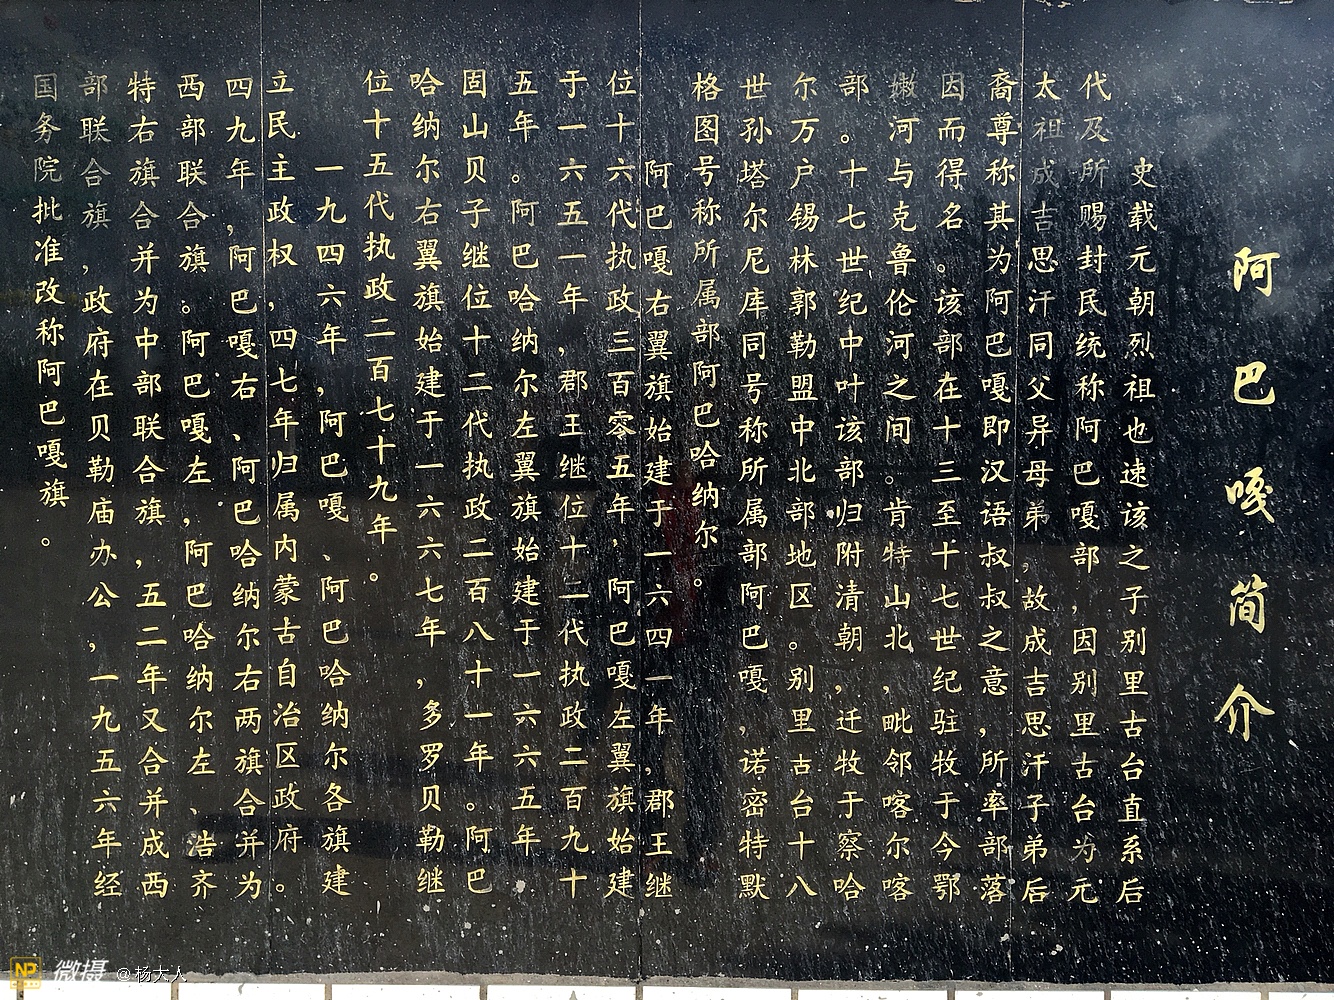 阿巴嘎简介
史载元朝烈祖也速该之子别里古台直系后
代及所赐封民统称阿巴嘎部，因别里古台为元
太祖成吉思汗同父异母弟，故成吉思汗子弟后
裔尊称其为阿巴嘎即汉语叔叔之意，所率部落
因而得名。该部在十三至十七世纪驻牧于今鄂
嫩河与克鲁伦河之间。肯特山北，毗邻喀尔喀
部。十七世纪中叶该部归附清朝，迁牧于察哈
尔万户锡林郭勒盟中北部地区。别里古台十八
世孙塔尔尼库同号称所属部阿巴嘎，诺密特默
格图号称所属部阿巴哈纳尔。
阿巴嘎右翼旗始建于一六四一年，郡王继
位十六代执政三百零五年，阿巴嘎左翼旗始建
于一六五一年，郡王继位十二代执政二百九十
五年。阿巴哈纳尔左翼旗始建于一六六五年。
固山贝子继位十二代执政二百八十一年。阿巴
哈纳尔右翼旗始建于一六六七年，多罗贝勒继
位十五代执政二百七十九年。
一九四六年，阿巴嘎、阿巴哈纳尔各旗建
立民主政权，四七年归属内蒙古自治区政府。
四九年，阿巴嘎右、阿巴哈纳尔右两旗合并为
西部联合旗。阿巴嘎左，阿巴哈纳尔左、浩齐
特右旗合并为中部联合旗，五二年又合并成西
部联合旗，政府在贝勒庙办公，一九五六年经
国务院批准改称阿巴嘎旗。
微摄 @杨大人